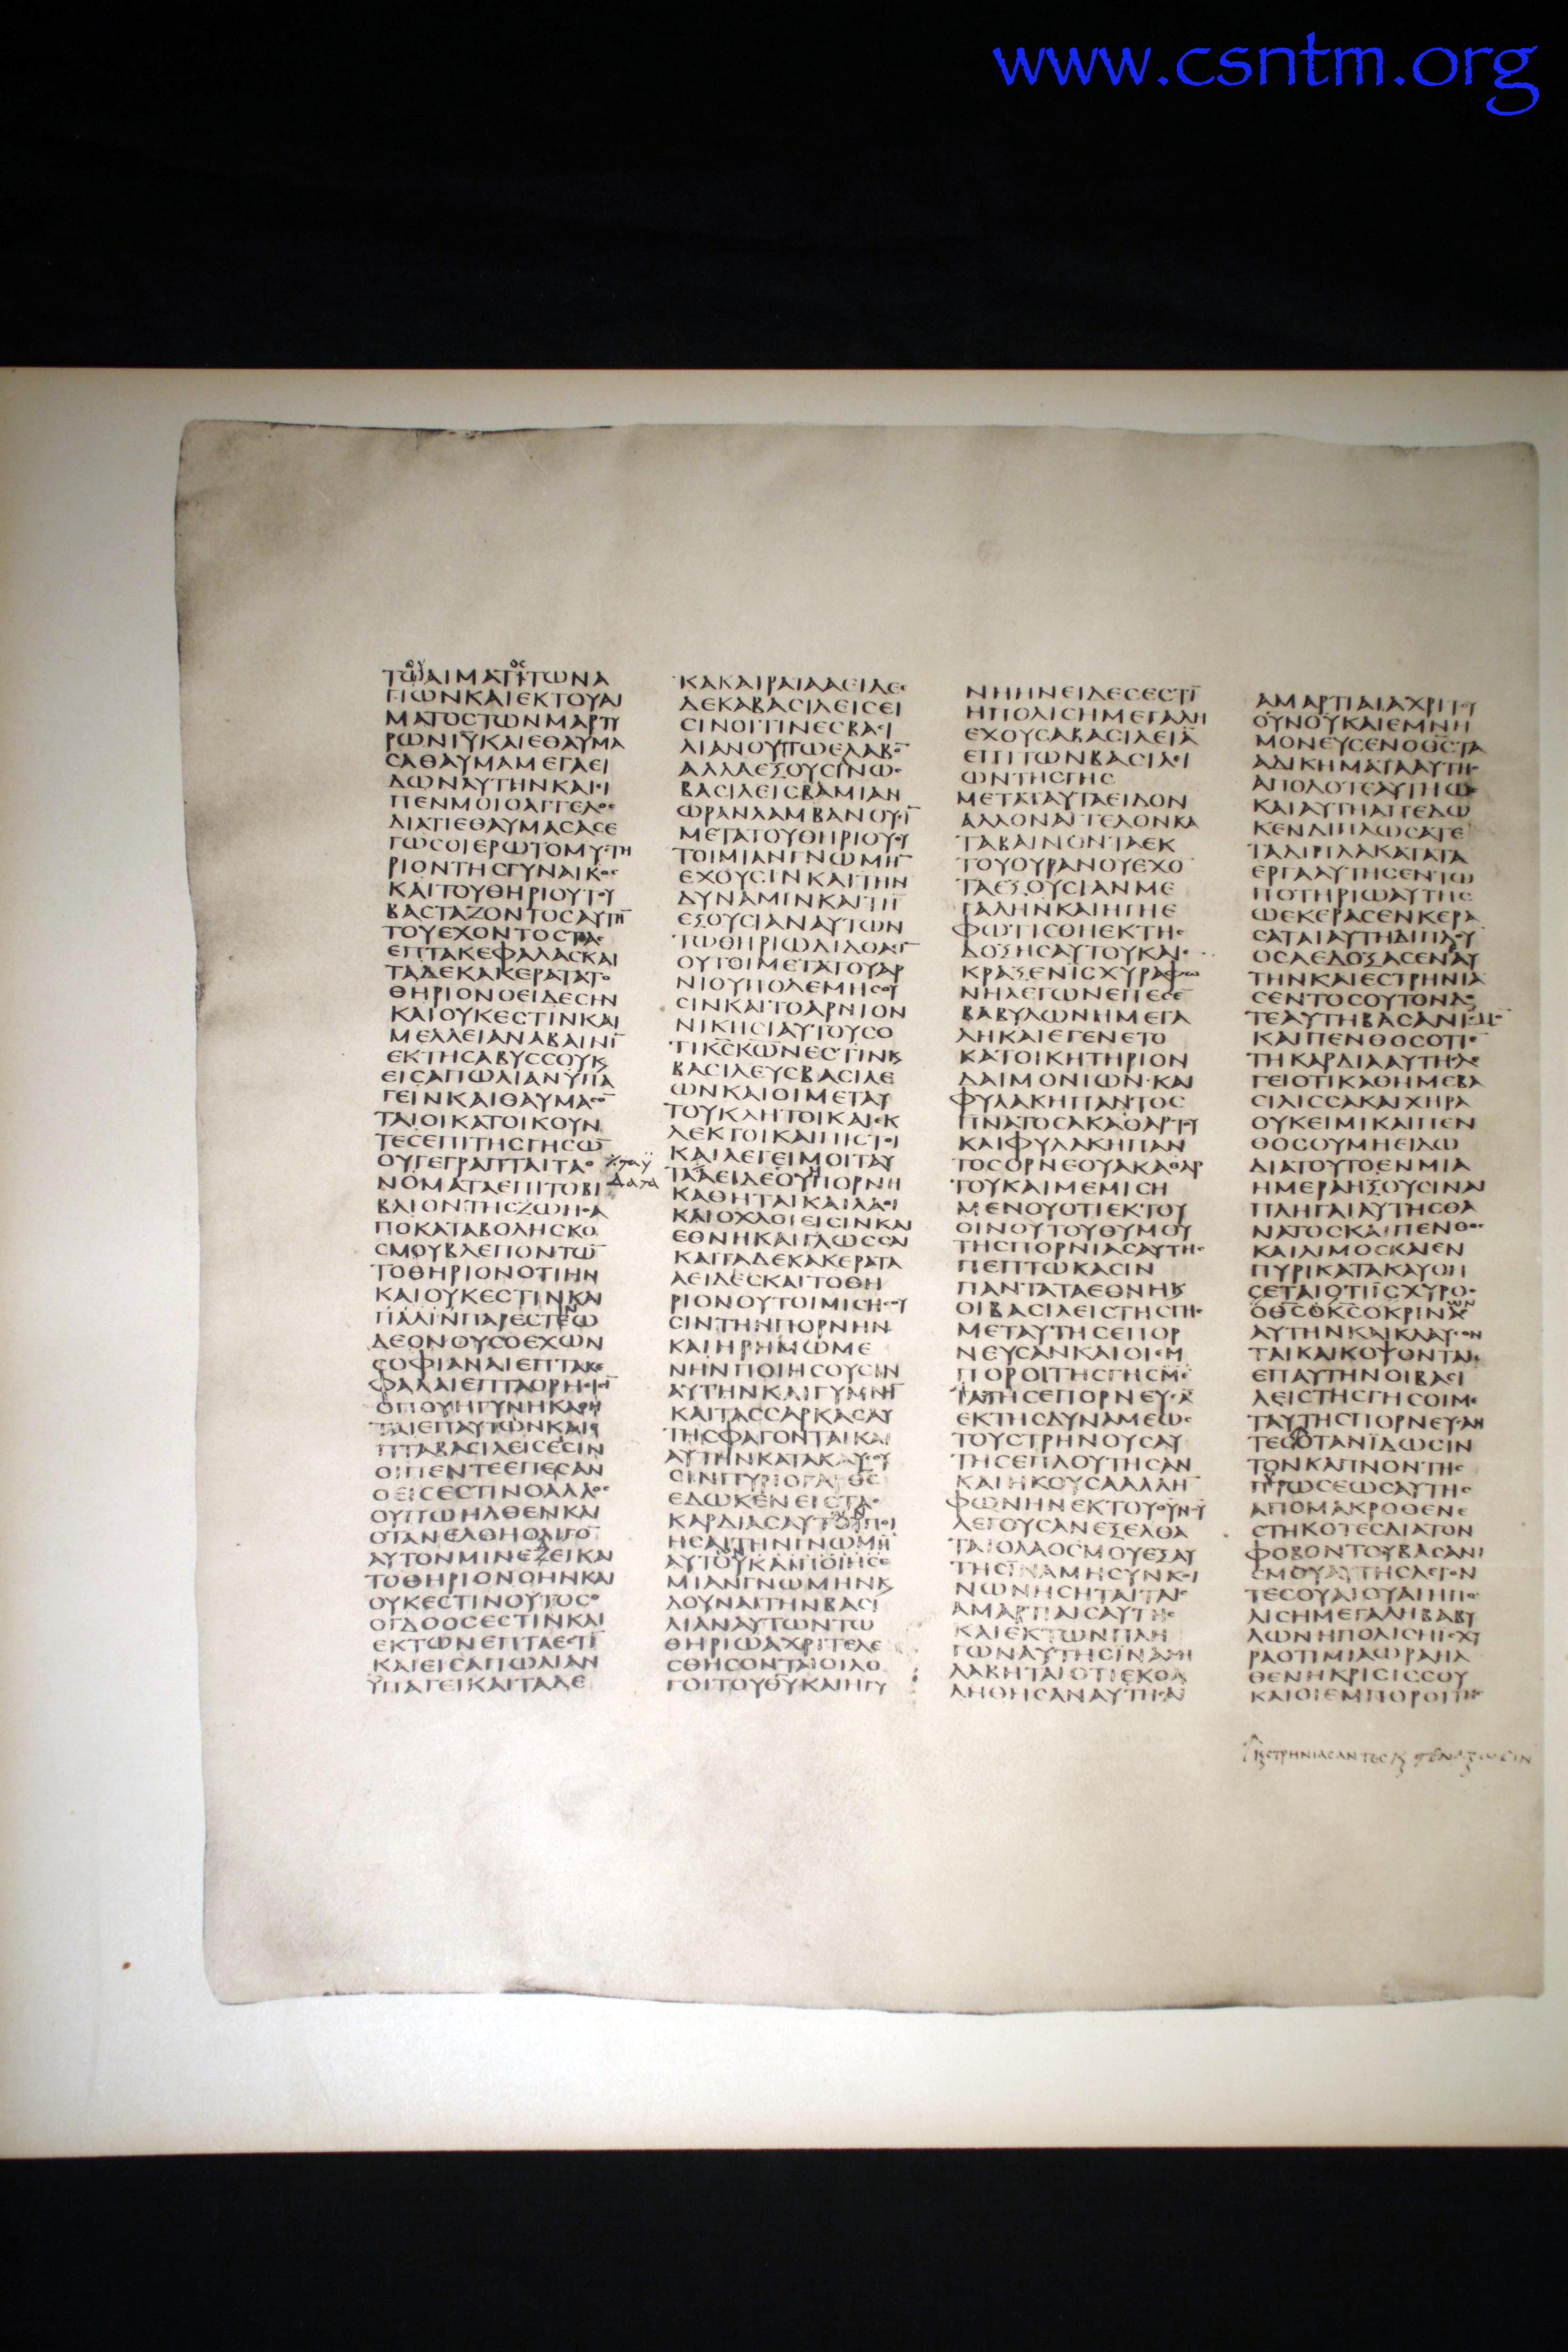 www.csntm.org
ΤΩΑΙΜΑΤΙΤΩΝΑ
ΓΙΩΝΚΑΙΕΚΤΟΥΑΙ
ΜΑΤΟϹΤΩΝΜΑΡΤΥ
ΡΩΝΙΥΚΑΙΕΘΑΥΜΑ
ϹΑΘΑΥΜΑΜΕΓΑΕΙ
ΔΩΝΑΥΤΗΝΚΑΙΕΙ
ΠΕΝΜΟΙΟΑΓΓΕΛΟϹ
ΔΙΑΤΙΕΘΑΥΜΑϹΑϹΕ
ΓΩϹΟΙΕΡΩΤΟΜΥϹΤΗ
ΡΙΟΝΤΗϹΓΥΝΑΙΚΟϹ
ΚΑΙΤΟΥΘΗΡΙΟΥΤΟΥ
ΒΑϹΤΑΖΟΝΤΟϹΑΥΤΗ̅
ΤΟΥΕΧΟΝΤΟϹΤΑϹ
ΕΠΤΑΚΕΦΑΛΑϹΚΑΙ
ΤΑΔΕΚΑΚΕΡΑΤΑΤΟ
ΘΗΡΙΟΝΟΕΙΔΕϹΗΝ
ΚΑΙΟΥΚΕϹΤΙΝΚΑΙ
ΜΕΛΛΕΙΑΝΑΒΑΙΝΙ̅
ΕΚΤΗϹΑΒΥϹϹΟΥΚϗ
ΕΙϹΑΠΩΛΙΑΝΥΠΑ
ΓΕΙΝΚΑΙΘΑΥΜΑϹΟ̅
ΤΑΙΟΙΚΑΤΟΙΚΟΥΝ
ΤΕϹΕΠΙΤΗϹΓΗϹΩ̅
ΟΥΓΕΓΡΑΠΤΑΙΤΑΟ
ΝΟΜΑΤΑΕΠΙΤΟΒΙ
ΒΛΙΟΝΤΗϹΖΩΗϹΑ
ΠΟΚΑΤΑΒΟΛΗϹΚΟ
ϹΜΟΥΒΛΕΠΟΝΤΩ̅
ΤΟΘΗΡΙΟΝΟΤΙΗΝ
ΚΑΙΟΥΚΕϹΤΙΝΚΑΙ
ΠΑΛΙΝΠΑΡΕϹΤΕΩ
ΔΕΟΝΟΥϹΟΕΧΩΝ
ϹΟΦΙΑΝΑΙΕΠΤΑΚΕ
ΦΑΛΑΙΕΠΤΑΟΡΗΕΙϹΙ̅
ΟΠΟΥΗΓΥΝΗΚΑΘΗ
ΤΑΙΕΠΑΥΤΩΝΚΑΙΕ
ΠΤΑΒΑϹΙΛΕΙϹΕϹΙΝ
ΟΙΠΕΝΤΕΕΠΕϹΑΝ
ΟΕΙϹΕϹΤΙΝΟΑΛΛΟϹ
ΟΥΠΩΗΛΘΕΝΚΑΙ
ΟΤΑΝΕΛΘΗΟΛΙΓΟ̅
ΑΥΤΟΝΜΙΝΕΔΕΙΚΑΙ
ΤΟΘΗΡΙΟΝΟΗΝΚΑΙ
ΟΥΚΕϹΤΙΝΟΥΤΟϹΟ
ΟΓΔΟΟϹΕϹΤΙΝΚΑΙ
ΕΚΤΩΝΕΠΤΑΕϹΤΙ̅
ΚΑΙΕΙϹΑΠΩΛΙΑΝ
ΫΠΑΓΕΙΚΑΙΤΑΔΕ
ΚΑΚΑΙΡΑΤΑΑΕΙΔΕϹ
ΔΕΚΑΒΑϹΙΛΕΙϹΕΙ
ϹΙΝΟΙΤΙΝΕϹΒΑϹΙ
ΛΙΑΝΟΥΠΩΕΛΑΒΟ̅
ΑΛΛΑΕΞΟΥϹΙΝΩϹ
ΒΑϹΙΛΕΙϹΒΑΜΙΑΝ
ΩΡΑΝΛΑΜΒΑΝΟΥϹΙ̅
ΜΕΤΑΤΟΥΘΗΡΙΟΥΟΥ
ΤΟΙΜΙΑΝΓΝΩΜΗ̅
ΕΧΟΥϹΙΝΚΑΙΤΗΝ
ΔΥΝΑΜΙΝΚΑΙΤΗ̅
ΕΞΟΥϹΙΑΝΑΥΤΩΝ
ΤΩΘΗΡΙΩΔΙΔΟΑϹΙ̅
ΟΥΤΟΙΜΕΤΑΤΟΥΑΡ
ΝΙΟΥΠΟΛΕΜΗϹΟΥ
ϹΙΝΚΑΙΤΟΑΡΝΙΟΝ
ΝΙΚΗϹΙΑΥΤΟΥϹΟ
ΤΙΚϹΚΩΝΕϹΤΙΝϗ
ΒΑϹΙΛΕΥϹΒΑϹΙΛΕ
ΩΝΚΑΙΟΙΜΕΤΑΥ
ΤΟΥΚΛΗΤΟΙΚΑΙΕΚ
ΛΕΚΤΟΙΚΑΙΠΙϹΤΟΙ
ΚΑΙΛΕΓΕΙΜΟΙΤΑΥ
ΤΑΑΕΙΔΕϹΟΥΗΠΟΡΝΗ
ΚΑΘΗΤΑΙΚΑΙΛΑΟΙ
ΚΑΙΟΧΛΟΙΕΙϹΙΝΚΑΙ
ΕΘΝΗΚΑΙΓΛΩϹϹΑΙ
ΚΑΙΤΑΔΕΚΑΚΕΡΑΤΑ
ΑΕΙΔΕϹΚΑΙΤΟΘΗ
ΡΙΟΝΟΥΤΟΙΜΙϹΗϹΟΥ
ϹΙΝΤΗΝΠΟΡΝΗΝ
ΚΑΙΗΡΗΜΩΜΕ
ΝΗΝΠΟΙΗϹΟΥϹΙΝ
ΑΥΤΗΝΚΑΙΓΥΜΝΗ̅
ΚΑΙΤΑϹϹΑΡΚΑϹΑΥ
ΤΗϹΦΑΓΟΝΤΑΙΚΑΙ
ΑΥΤΗΝΚΑΤΑΚΑΥϹΟΥ
ϹΙΝΠΥΡΙΟΓΑΡΘϹ
ΕΔΩΚΕΝΕΙϹΤΑϹ
ΚΑΡΔΙΑϹΑΥΤΟΥΠΟΙ
ΗϹΑΙΤΗΝΓΝΩΜΗ̅
ΑΥΤΟΥΚΑΙΠΟΙΗϹΕ
ΜΙΑΝΓΝΩΜΗΝϗ
ΔΟΥΝΑΙΤΗΝΒΑϹΙ
ΛΙΑΝΑΥΤΩΝΤΩ
ΘΗΡΙΩΑΧΡΙΤΕΛΕ
ϹΘΗϹΟΝΤΑΙΟΙΛΟ
ΓΟΙΤΟΥΘΥΚΑΙΗΓΥ
ΝΗΗΝΕΙΔΕϹΕϹΤΙ̅
ΗΠΟΛΙϹΗΜΕΓΑΛΗ
ΕΧΟΥϹΑΒΑϹΙΛΕΙΑ̅
ΕΠΙΤΩΝΒΑϹΙΛΕΙ
ΩΝΤΗϹΓΗϹ
ΜΕΤΑΤΑΥΤΑΕΙΔΟΝ
ΑΛΛΟΝΑΓΓΕΛΟΝΚΑ
ΤΑΒΑΙΝΟΝΤΑΕΚ
ΤΟΥΟΥΡΑΝΟΥΕΧΟ̅
ΤΑΕΞΟΥϹΙΑΝΜΕ
ΓΑΛΗΝΚΑΙΗΓΗΕ
ΦΩΤΙϹΘΗΕΚΤΗϹ
ΔΟΞΗϹΑΥΤΟΥΚΑΙΕ
ΚΡΑΞΕΝΙϹΧΥΡΑΦΩ
ΝΗΛΕΓΩΝΕΠΕϹΕ̅
ΒΑΒΥΛΩΝΗΜΕΓΑ
ΛΗΚΑΙΕΓΕΝΕΤΟ
ΚΑΤΟΙΚΗΤΗΡΙΟΝ
ΔΑΙΜΟΝΙΩΝ·ΚΑΙ
ΦΥΛΑΚΗΠΑΝΤΟϹ
ΠΝΑΤΟϹΑΚΑΘΑΡΤΟΥ
ΚΑΙΦΥΛΑΚΗΠΑΝ
ΤΟϹΟΡΝΕΟΥΑΚΑΘΑΡ
ΤΟΥΚΑΙΜΕΜΙϹΗ
ΜΕΝΟΥΟΤΙΕΚΤΟΥ
ΟΙΝΟΥΤΟΥΘΥΜΟΥ
ΤΗϹΠΟΡΝΙΑϹΑΥΤΗϹ
ΠΕΠΤΩΚΑϹΙΝ
ΠΑΝΤΑΤΑΕΘΝΗϗ
ΟΙΒΑϹΙΛΕΙϹΤΗϹΓΗϹ
ΜΕΤΑΥΤΗϹΕΠΟΡ
ΝΕΥϹΑΝΚΑΙΟΙΕΜ
ΠΟΡΟΙΤΗϹΓΗϹΜΕ
ΤΑΤΗϹΕΠΟΡΝΕΥϹΑ̅
ΕΚΤΗϹΔΥΝΑΜΕΩϹ
ΤΟΥϹΤΡΗΝΟΥϹΑΥ
ΤΗϹΕΠΛΟΥΤΗϹΑΝ
ΚΑΙΗΚΟΥϹΑΑΛΛΗ̅
ΦΩΝΗΝΕΚΤΟΥΟΥΝΟΥ
ΛΕΓΟΥϹΑΝΕΞΕΛΘΑ
ΤΑΙΟΛΑΟϹΜΟΥΕΞΑΥ
ΤΗϹΙΝΑΜΗϹΥΝΚΟΙ
ΝΩΝΗϹΗΤΑΙΤΑΙϹ
ΑΜΑΡΤΙΑΙϹΑΥΤΗϹ
ΚΑΙΕΚΤΩΝΠΛΗ
ΓΩΝΑΥΤΗϹΙΝΑΜΗ
ΛΑΒΗΤΑΙΟΤΙΕΚΟΛ
ΛΗΘΗϹΑΝΑΥΤΗϹΑΙ
ΑΜΑΡΤΙΑΙΑΧΡΙΤΟΥ
ΟΥΝΟΥΚΑΙΕΜΝΗ
ΜΟΝΕΥϹΕΝΟΘϹΤΑ
ΑΔΙΚΗΜΑΤΑΑΥΤΗϹ
ΑΠΟΔΟΤΕΑΥΤΗΩϹ
ΚΑΙΑΥΤΗΑΠΕΔΩ
ΚΕΝΔΙΠΛΩϹΑΤΕ
ΤΑΔΙΠΛΑΚΑΤΑΤΑ
ΕΡΓΑΑΥΤΗϹΕΝΤΩ
ΠΟΤΗΡΙΩΑΥΤΗϹ
ΩΕΚΕΡΑϹΕΝΚΕΡΑ
ϹΑΤΑΙΑΥΤΗΔΙΠΛΟΥ
ΟϹΑΕΔΟΞΑϹΕΝΑΥ
ΤΗΝΚΑΙΕϹΤΡΗΝΙΑ
ϹΕΝΤΟϹΟΥΤΟΝΔΟ
ΤΕΑΥΤΗΒΑϹΑΝΙϹΜΟ̅
ΚΑΙΠΕΝΘΟϹΟΤΙΕ̅
ΤΗΚΑΡΔΙΑΑΥΤΗϹΛΕ
ΓΕΙΟΤΙΚΑΘΗΜΕΒΑ
ϹΙΛΙϹϹΑΚΑΙΧΗΡΑ
ΟΥΚΕΙΜΙΚΑΙΠΕΝ
ΘΟϹΟΥΜΗΕΙΔΩ
ΔΙΑΤΟΥΤΟΕΝΜΙΑ
ΗΜΕΡΑΗΞΟΥϹΙΝΑΙ
ΠΛΗΓΑΙΑΥΤΗϹΘΑ
ΝΑΤΟϹΚΑΙΠΕΝΘΟϹ
ΚΑΙΛΙΜΟϹΚΑΙΕΝ
ΠΥΡΙΚΑΤΑΚΑΥΘΗ
ϹΕΤΑΙΟΤΙΙϹΧΥΡΟϹ
ΟΘϹΟΚϹΟΚΡΙΝΑϹ
ΑΥΤΗΝΚΑΙΚΛΑΥϹΟΝ
ΤΑΙΚΑΙΚΟΨΟΝΤΑΙ
ΕΠΑΥΤΗΝΟΙΒΑϹΙ
ΛΕΙϹΤΗϹΓΗϹΟΙΜΕ
ΤΑΥΤΗϹΠΟΡΝΕΥϹΑΝ
ΤΕϹΟΤΑΝΪΔΩϹΙΝ
ΤΟΝΚΑΠΝΟΝΤΗϹ
ΠΥΡΩϹΕΩϹΑΥΤΗϹ
ΑΠΟΜΑΚΡΟΘΕΝΕ
ϹΤΗΚΟΤΕϹΔΙΑΤΟΝ
ΦΟΒΟΝΤΟΥΒΑϹΑΝΙ
ϹΜΟΥΑΥΤΗϹΛΕΓΟΝ
ΤΕϹΟΥΑΙΟΥΑΙΗΠΟ
ΛΙϹΗΜΕΓΑΛΗΒΑΒΥ
ΛΩΝΗΠΟΛΙϹΗΙϹΧΥ
ΡΑΟΤΙΜΙΑΩΡΑΗΛ
ΘΕΝΗΚΡΙϹΙϹϹΟΥ
ΚΑΙΟΙΕΜΠΟΡΟΙΤΗϹ
ϗϹΤΡΗΝΙΑϹΑΝΤΕϹ